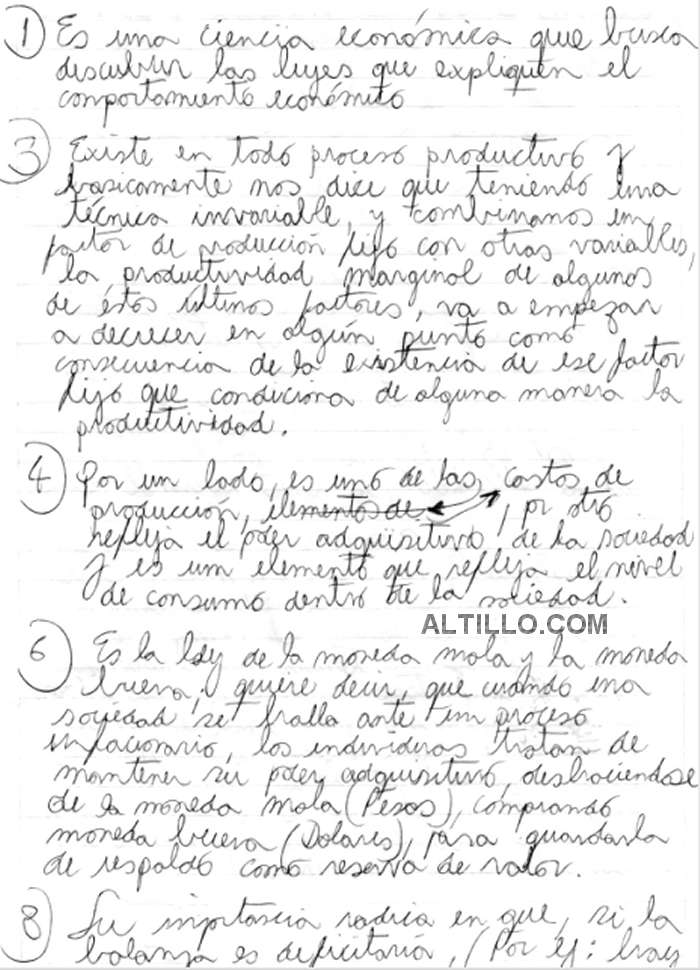 1 Es una ciencia económica que busca
descubrir las leyes que expliquen el
comportamiento económico
3 Existe en todo proceso productivo y
basicamente nos dice que teniendo una
técnica invariable, y combinamos un
factor de producción fijo con otras variables,
la productividad marginal de algunos
de éstos últimos factores, va a empezar
a decrecer en algún punto como
consecuencia de la existencia de ese factor
fijo que condiciona de alguna manera la
productividad.
4 Por un lado, es uno de las costos de
producción, elementos de, por otro
refleja el poder adquisitivo de la sociedad
y es um elemento que refleja el nivel
de consumo dentro de la sociedad.
ALTILLO.COM
6 Es la ley de la moneda mala y la moneda
buena; quiere decir, que cuando una
sociedad se halla ante un proceso
inflacionario, los individuos tratan de
mantener su poder adquisitivo, deshaciendose
de la moneda mala (Pesos), comprando
moneda buena (Dolares), para guardarla
de respaldo como reserva de valor.
8 Su importancia radica en que, si la
balanza es deficitaria, (Por ej: